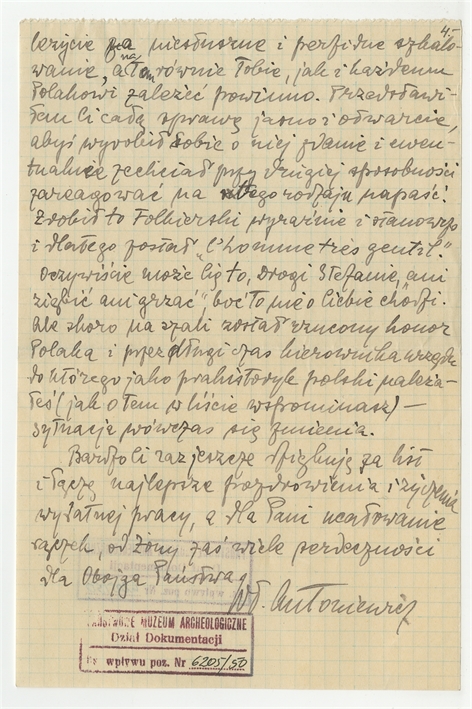 4.
leżycie na niesłuszne i perfidne szkalo-
wanie, a to równie Tobie, jak i każdemu
Polakowi zależeć powinno. Przedstawi-
łem Ci całą sprawę jasno i otwarcie,
abyś wyrobił sobie o niej zdanie i ewen-
tualnie zechciał przy drugiej sposobności
zareagować na tego rodzaju napaść.
Zrobił to Folkierski wyraźnie i stanowczo
i dlatego został „l'homme très gentil".
Oczywiście może Cię to, drogi Stefanie, „ani
ziębić ani grzać" boć to nie o Ciebie chodzi.
Ale skoro na szali został rzucony honor
Polaka i przez długi czas kierownika urzędu
do którego jako prahistoryk polski należa-
łeś (jak o tem w liście wspominasz) –
sytuacja wówczas się zmienia.
Bardzo Ci raz jeszcze dziękuję za list
i łączę najlepsze pozdrowienia i życzenia
wydatnej pracy, a dla Pani ucałowanie
rączek, od żony zaś wiele serdeczności
dla Obojga Państwa
Wł. Antoniewicz
PAŃSTWOWE MUZEUM ARCHEOLOGICZNE
Dział Dokumentacji
wpływu poz. Nr 6205/50